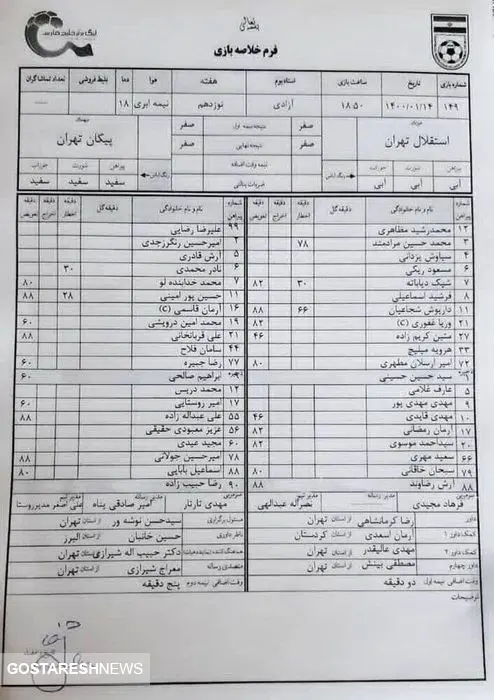 بسمه تعالی
لیگ برتر خلیج فارس
فرم خلاصه بازی
شماره بازی تاریخ ساعت بازی استادیوم هفته هوا دما بلیط فروشی تعداد تماشاگران
۱۴۹ ۱۴۰۰/۰۱/۱۴ ۱۸:۵۰ آزادی نوزدهم نیمه ابری ۱۸
استقلال تهران صفر نتیجه نیمه اول صفر پیکان تهران
صفر نتیجه نهایی صفر
نیمه وقت اضافه
پیراهن شورت جوراب رنگ لباس ضربات پنالتی پیراهن شورت جوراب رنگ لباس
آبی آبی آبی سفید سفید سفید
شماره پیراهن نام و نام خانوادگی دقیقه گل دقیقه اخطار دقیقه اخراج دقیقه تعویض شماره پیراهن نام و نام خانوادگی دقیقه گل دقیقه اخطار دقیقه اخراج دقیقه تعویض
۱۲ محمدرشید مظاهری ۹۹ علیرضا رضایی
۳ محمد حسین مرادمند ۷۸ ۲ امیرحسین رنگرزجدی
۴ سیاوش یزدانی ۵ آرش قادری
۶ مسعود ریگی ۶ نادر محمدی ۳۰
۷ شیک دیاباته ۳۰ ۸۲ ۷ محمد خدابنده لو ۸۰
۸ فرشید اسماعیلی ۱۱ حسین پور امینی ۲۸ ۸۸
۱۱ داریوش شجاعیان ۶۶ ۸۸ ۱۶ آرمان قاسمی (C)
۲۱ وریا غفوری (C) ۸۲ ۱۹ محمد امین درویشی ۶۰
۲۷ متین کریم زاده ۴۶ ۲۱ علی قربانخانی ۸۸
۳۳ هرویه میلیچ ۴۴ سامان فلاح
۷۲ امیر ارسلان مطهری ۸۰ ۷۷ رضا جبیره ۶۰
سید حسین حسینی ابراهیم صالحی ۶۰
۵ عارف غلامی ۱۲ محمد دریس
۹ مهدی مهدی پور ۱۷ امیر روستایی ۶۰
۱۰ مهدی قایدی ۴۶ ۵۵ علی عبداله زاده ۸۸
۱۷ آرمان رمضانی ۸۲ ۵۶ عزیز معبودی حقیقی
۲۰ سیداحمد موسوی ۸۲ ۶۰ مجید عیدی
۶۶ سعید مهری ۷۸ امیرحسین جولانی ۸۸
۷۹ سبحان خاقانی ۸۰ ۸۸ اسماعیل بابایی ۸۰
۸۸ آرش رضاوند ۸۸ ۹۰ رضا حبیب زاده
سرمربی فرهاد مجیدی مدیر رسانه مدیر تیم نصراله عبدالهی سرمربی مهدی تارتار مدیر رسانه امیر صادقی پناه مدیر تیم علی اصغر مدیرروستا
داور رضا کرمانشاهی از استان تهران مسئول برگزاری سیدحسن نوشه ور از استان تهران
کمک داور ۱ آرمان اسعدی از استان کردستان ناظر داوری حسین خانبان از استان البرز
کمک داور ۲ مهدی عالیقدر از استان تهران دکتر حبیب اله شیرازی از استان تهران
داور چهارم مصطفی بینش از استان تهران متصدی رسانه معراج شیرازی از استان تهران
وقت اضافی نیمه اول دو دقیقه وقت اضافی نیمه دوم پنج دقیقه
توضیحات
GOSTARESHNEWS